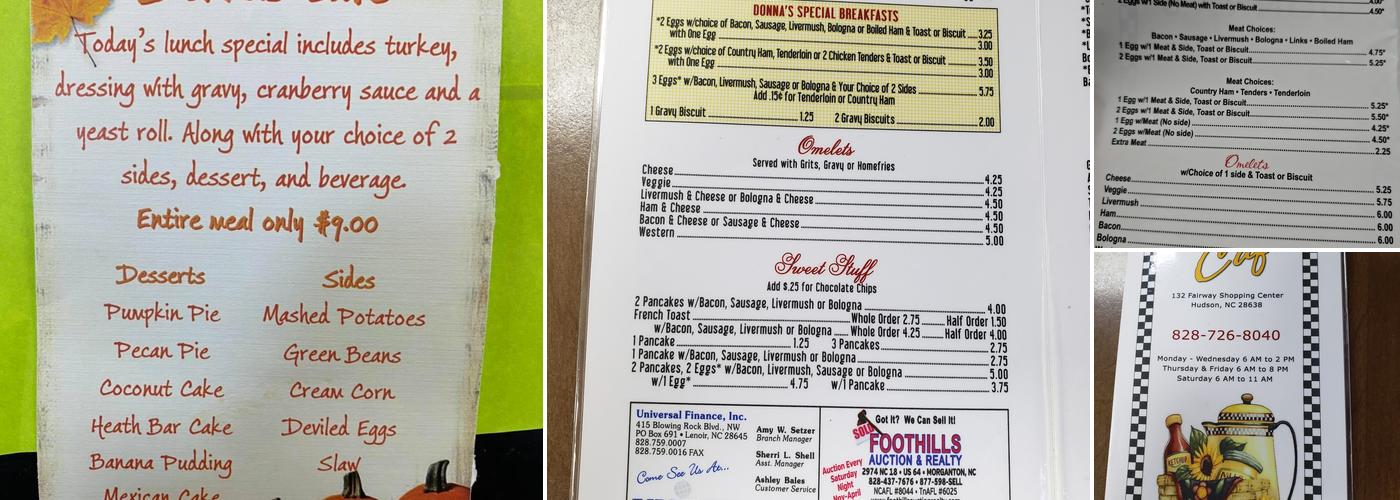 Today's lunch special includes turkey,
dressing with gravy, cranberry sauce and a
yeast roll. Along with your choice of 2
sides, dessert, and beverage.
Entire meal only $9.00
Desserts Sides
Pumpkin Pie Mashed Potatoes
Pecan Pie Green Beans
Coconut Cake Cream Corn
Heath Bar Cake Deviled Eggs
Banana Pudding Slaw
Mexican Cake
DONNA'S SPECIAL BREAKFASTS
*2 Eggs w/choice of Bacon, Sausage, Livermush, Bologna or Boiled Ham & Toast or Biscuit 3.25
with One Egg 3.00
*2 Eggs w/choice of Country Ham, Tenderloin or 2 Chicken Tenders & Toast or Biscuit 3.50
with One Egg 3.00
3 Eggs* w/Bacon, Livermush, Sausage or Bologna & Your Choice of 2 Sides 5.75
Add .15¢ for Tenderloin or Country Ham
1 Gravy Biscuit 1.25 2 Gravy Biscuits 2.00
Omelets
Served with Grits, Gravy or Homefries
Cheese 4.25
Veggie 4.25
Livermush & Cheese or Bologna & Cheese 4.50
Ham & Cheese 4.50
Bacon & Cheese or Sausage & Cheese 4.50
Western 5.00
Sweet Stuff
Add $.25 for Chocolate Chips
2 Pancakes w/Bacon, Sausage, Livermush or Bologna 4.00
French Toast Whole Order 2.75 Half Order 1.50
w/Bacon, Sausage, Livermush or Bologna Whole Order 4.25 Half Order 4.00
1 Pancake 1.25 3 Pancakes 2.75
1 Pancake w/Bacon, Sausage, Livermush or Bologna 2.75
2 Pancakes, 2 Eggs* w/Bacon, Livermush, Sausage or Bologna 5.00
w/1 Egg* 4.75 w/1 Pancake 3.75
Universal Finance, Inc.
415 Blowing Rock Blvd., NW
PO Box 691 • Lenoir, NC 28645
828.759.0007
828.759.0016 FAX
Come See Us At...
Amy W. Setzer
Branch Manager
Sherri L. Shell
Asst. Manager
Ashley Bales
Customer Service
Got it? We Can Sell It!
SOLD
FOOTHILLS
AUCTION & REALTY
2974 NC 18 • US 64 • MORGANTON, NC
828-437-7676 • 877-598-SELL
NCAFL #8044 • TnAFL #6025
Auction Every
Saturday
Night
Nov-April
2 Eggs w/1 Side (No Meat) with Toast or Biscuit 4.50*
Meat Choices:
Bacon • Sausage • Livermush • Bologna • Links • Boiled Ham
1 Egg w/1 Meat & Side, Toast or Biscuit 4.75*
2 Eggs w/1 Meat & Side, Toast or Biscuit 5.25*
Meat Choices:
Country Ham • Tenders • Tenderloin
1 Egg w/1 Meat & Side, Toast or Biscuit 5.25*
2 Eggs w/1 Meat & Side, Toast or Biscuit 5.50*
1 Egg w/Meat (No side) 4.25*
2 Eggs w/Meat (No side) 4.50*
Extra Meat 2.25
Omelets
w/Choice of 1 side & Toast or Biscuit
Cheese 5.25
Veggie 5.75
Livermush 6.00
Ham 6.00
Bacon 6.00
Bologna
132 Fairway Shopping Center
Hudson, NC 28638
828-726-8040
Monday - Wednesday 6 AM to 2 PM
Thursday & Friday 6 AM to 8 PM
Saturday 6 AM to 11 AM
KETCHUP